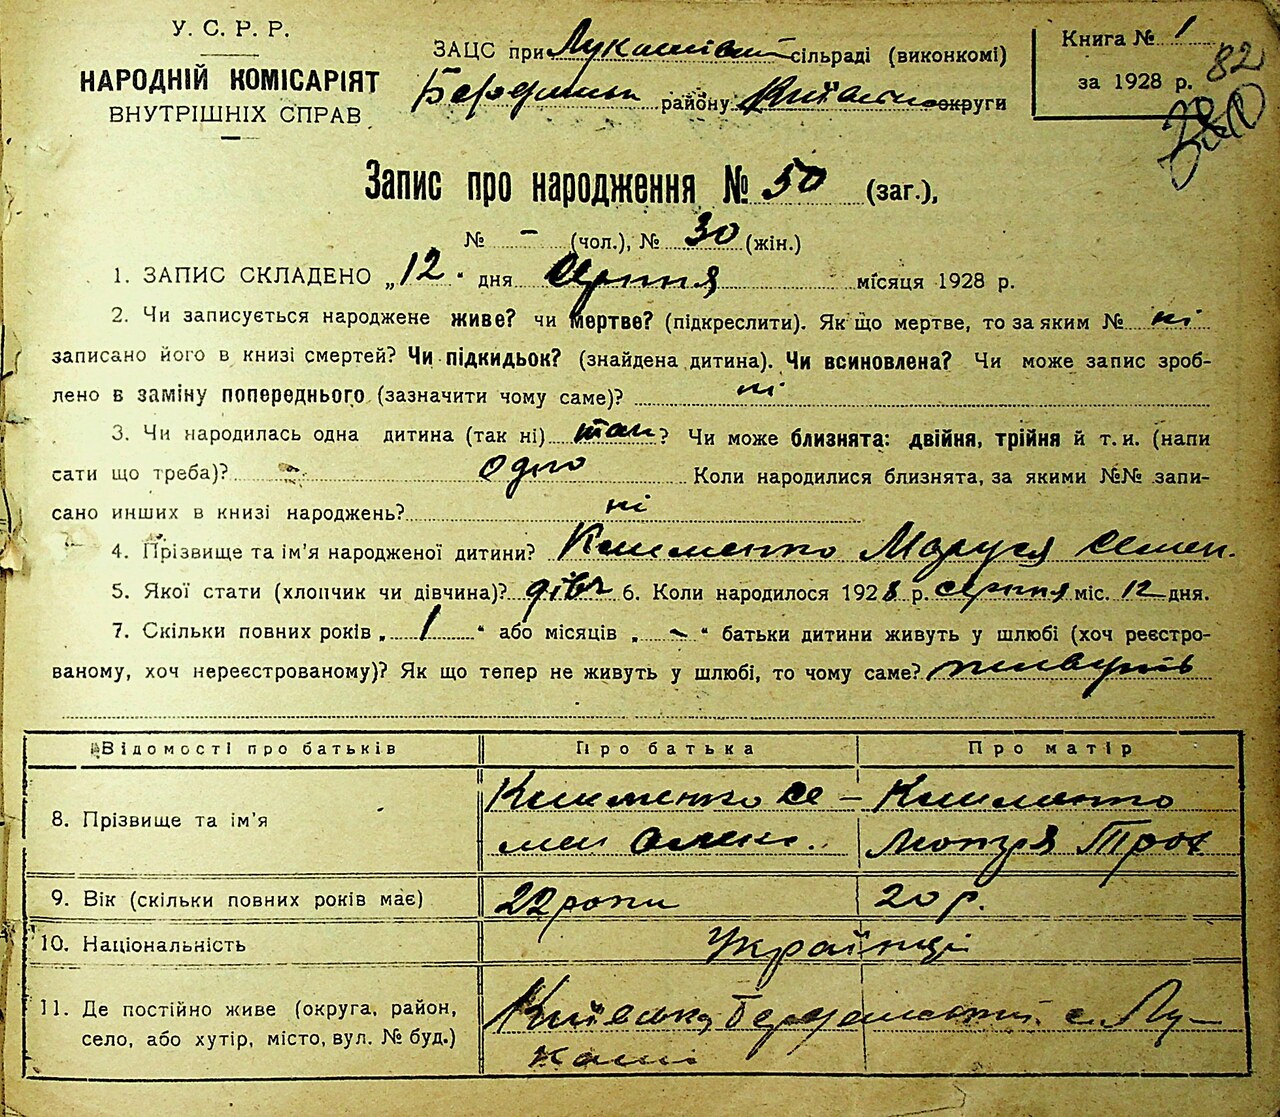 У. С. Р. Р.
НАРОДНІЙ КОМІСАРІЯТ
ВНУТРІШНІХ СПРАВ
ЗАЦС при Лукашівській сільраді (виконкомі)
району округи
Книга № 1
за 1928 р.
82
Запис про народження № 50 (заг.),
№ - (чол.), № 30 (жін.)
1. ЗАПИС СКЛАДЕНО „12“ дня Серпня місяця 1928 р.
2. Чи записується народжене живе? чи мертве? (підкреслити). Як що мертве, то за яким № ні
записано його в книзі смертей? Чи підкидьок? (знайдена дитина). Чи всиновлена? Чи може запис зроб-
лено в заміну попереднього (зазначити чому саме)? ні
3. Чи народилась одна дитина (так ні) так? Чи може близнята: двійня, трійня й т. и. (напи
сати що треба)? одно Коли народилися близнята, за якими №№ запи-
сано инших в книзі народжень? ні
4. Прізвище та ім'я народженої дитини? Клименко Маруся Семен.
5. Якої стати (хлопчик чи дівчина)? дівч 6. Коли народилося 1928 р. серпня міс. 12 дня.
7. Скільки повних років „1“ або місяців „-“ батьки дитини живуть у шлюбі (хоч реєстро-
ваному, хоч нереєстрованому)? Як що тепер не живуть у шлюбі, то чому саме? живуть
Відомості про батьків Про батька Про матір
8. Прізвище та ім'я Клименко Се- Клименко
мен Мотря
9. Вік (скільки повних років має) 22 роки 20 р.
10. Національність Українці
11. Де постійно живе (округа, район, с. Лу-
село, або хутір, місто, вул. № буд.) каші